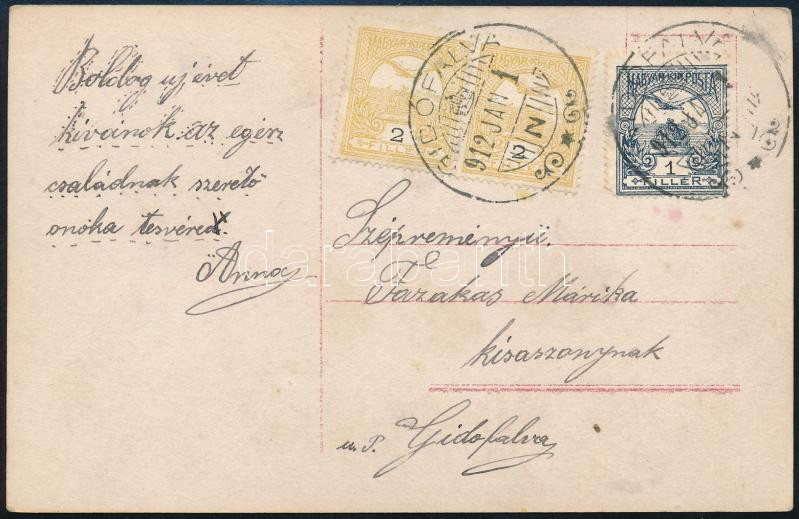 Boldog ujévet
kivánok az egész
családnak szerető
onoka tesvéred
Anna
GIDÓFALVA
912 JAN 1
N 2
MAGYAR KIR. POSTA
2
FILLÉR
MAGYAR KIR. POSTA
2
FILLÉR
MAGYAR KIR. POSTA
1
FILLÉR
Szépreményü
Fazakas Márika
kisaszonynak
u. P. Gidofalva
darabanth